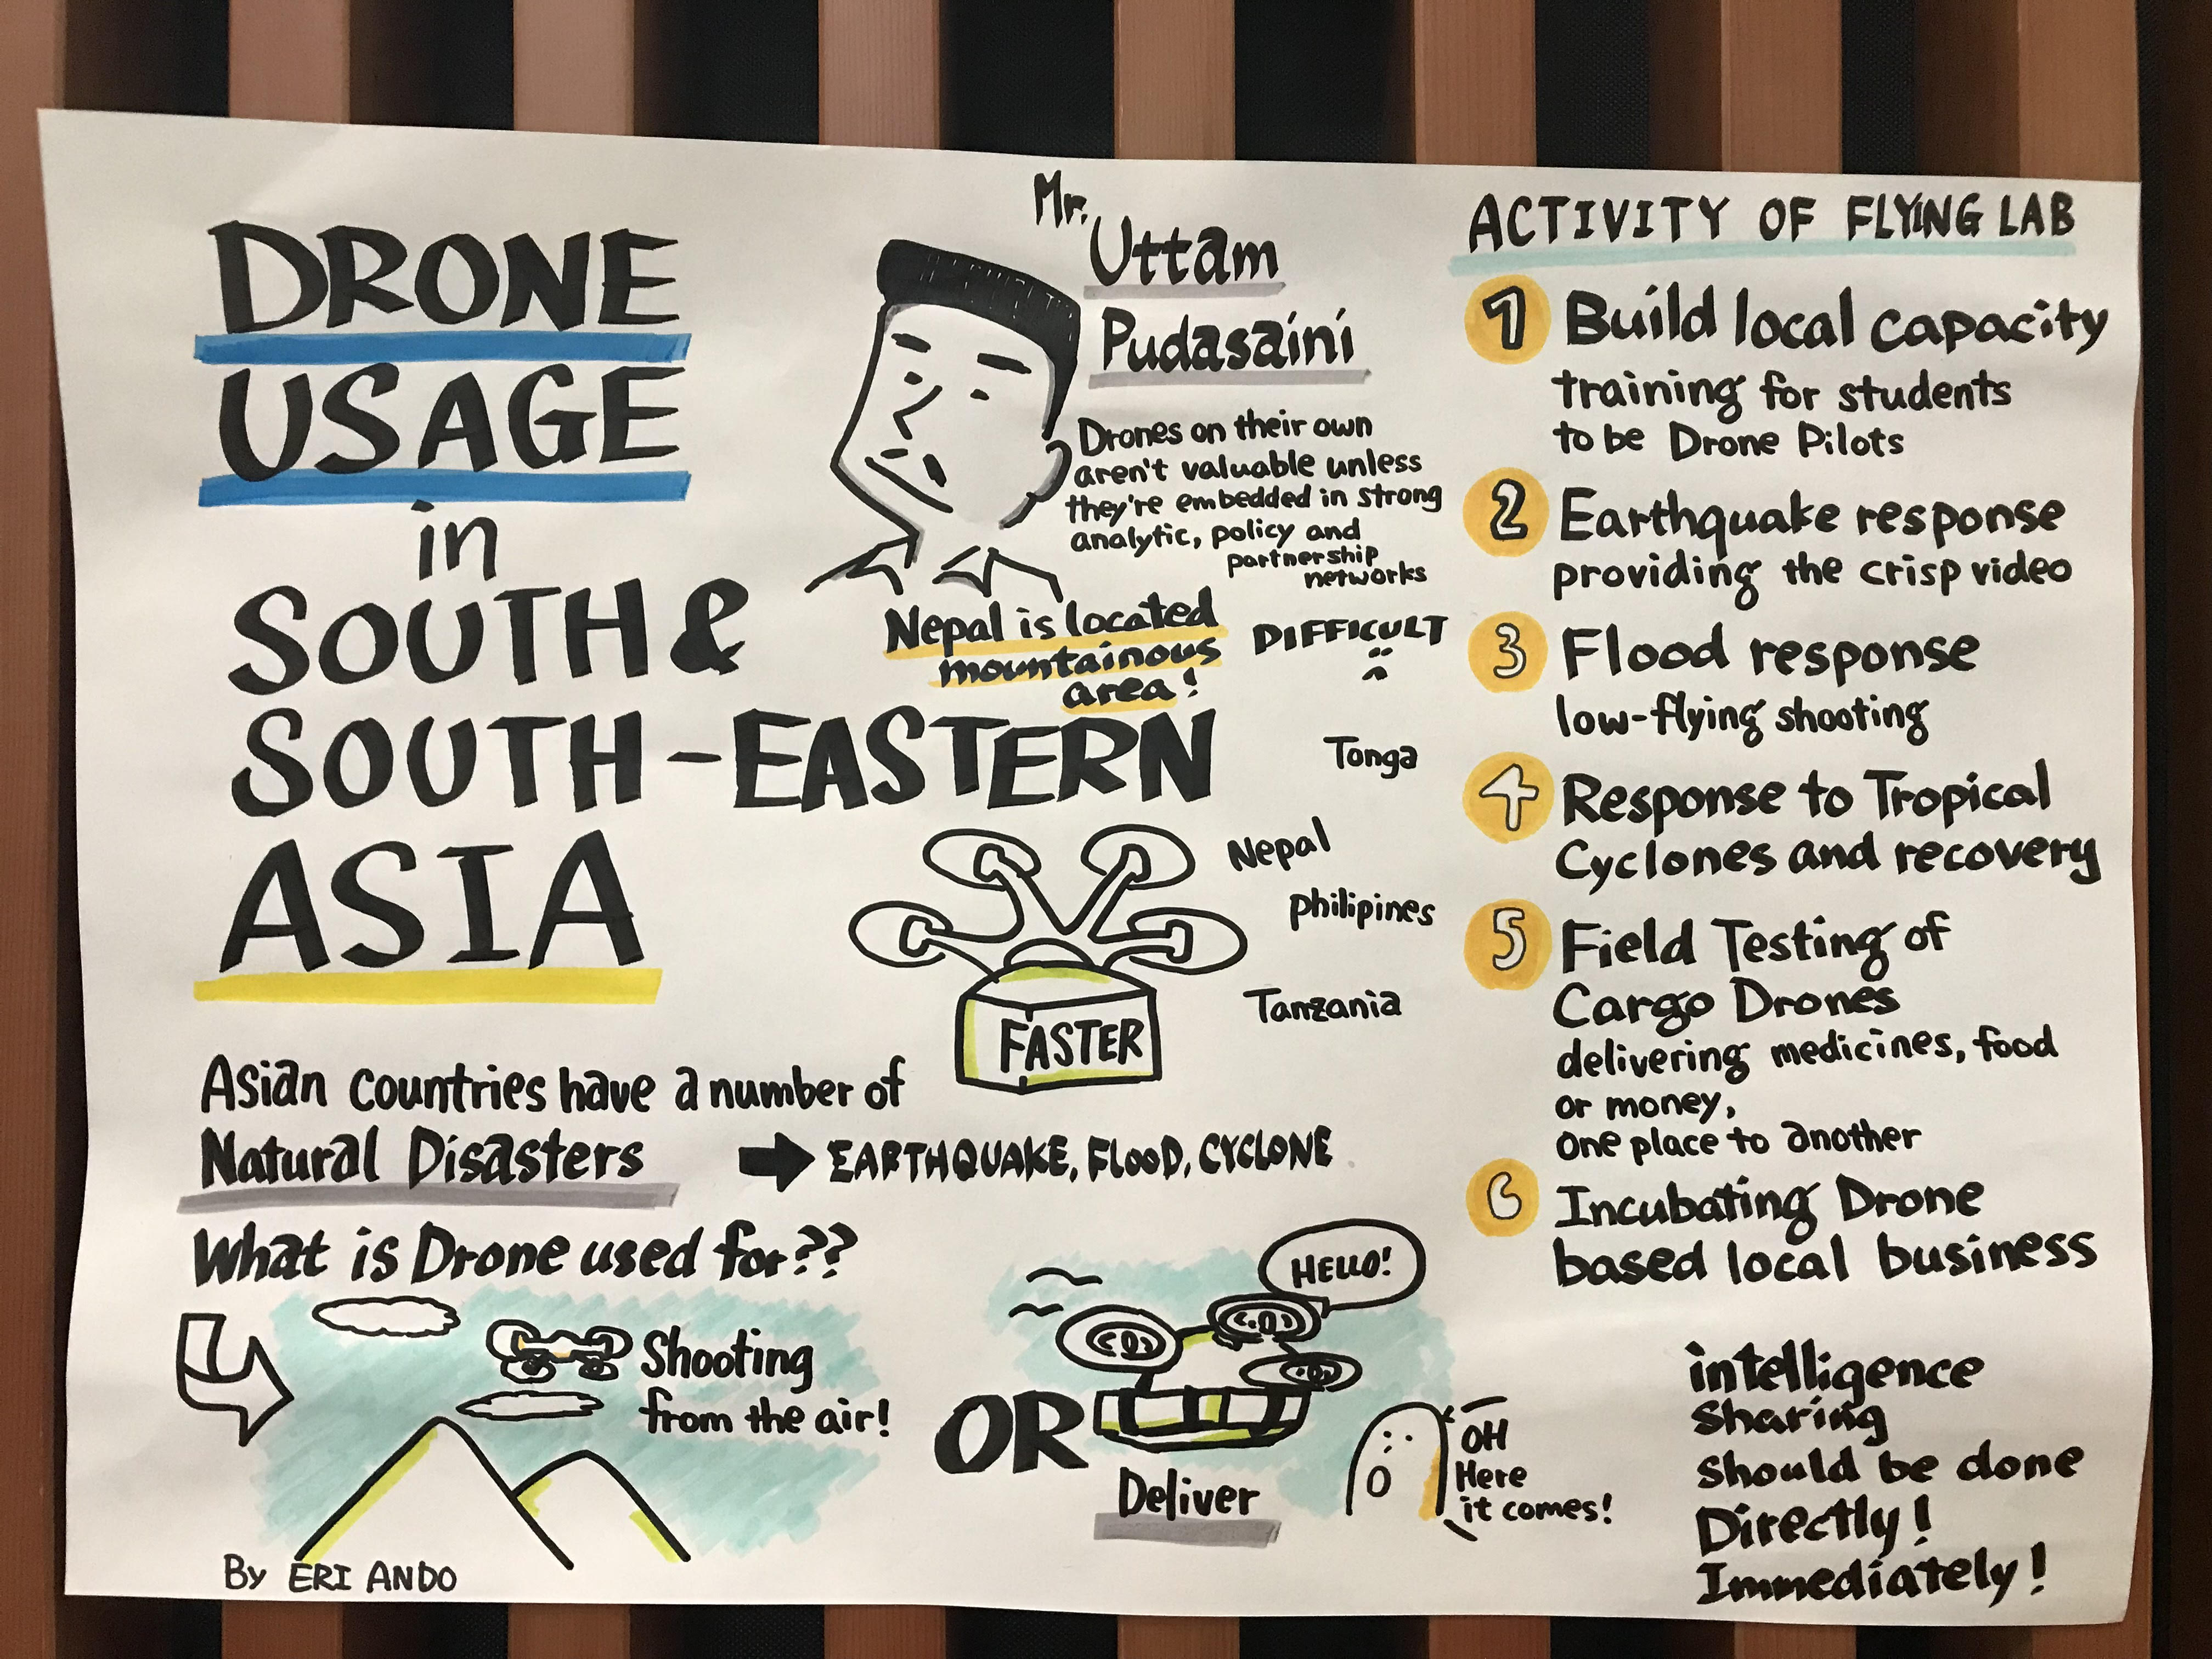 DRONE
USAGE
in
SOUTH &
SOUTH-EASTERN
ASIA
Mr.
Uttam
Pudasaini
Drones on their own
aren't valuable unless
they're embedded in strong
analytic, policy and
partnership
networks
Nepal is located
mountainous
area!
DIFFICULT
Tonga
Nepal
philipines
Tanzania
FASTER
Asian countries have a number of
Natural Disasters → EARTHQUAKE, FLOOD, CYCLONE
What is Drone used for??
Shooting
from the air!
OR
HELLO!
Deliver
OH
Here
it comes!
By ERI ANDO
ACTIVITY OF FLYING LAB
1 Build local capacity
training for students
to be Drone Pilots
2 Earthquake response
providing the crisp video
3 Flood response
low-flying shooting
4 Response to Tropical
Cyclones and recovery
5 Field Testing of
Cargo Drones
delivering medicines, food
or money,
one place to another
6 Incubating Drone
based local business
intelligence
sharing
should be done
Directly!
Immediately!